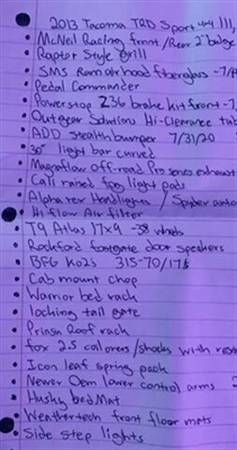 2013 Tacoma TRD Sport 4x4 111,
McNeil Racing front/Rear 2" bulge
Raptor Style Grill
SMS Ram air hood fiberglass -7/
Pedal Commander
Powerstop Z36 brake kit front -7,
Outgear Solutions Hi-Clearance tub
ADD Stealth bumper 7/31/20
30" light bar curved
Magnaflow off-road Pro series exhaust
Cali raised fog light pods
Alpharex Headlights / Spyder
Hi flow Air filter
T9 Atlas 17x9 -38 wheels
Rockford fosgate door speakers
BFG Ko2s 315-70/17s
Cab mount chop
Warrior bed rack
locking tail gate
Prinsu Roof rack
fox 2.5 coilovers/shocks with res
Icon leaf spring pack
Newer Oem lower control arms
Husky bed Mat
Weathertech front floor mats
Side step lights